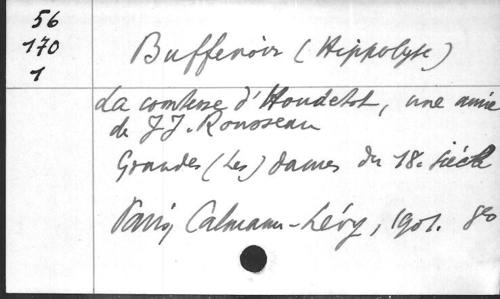 56
170
1
Buffenoir (Hippolyte)
La comtesse d'Houdetot, une amie
de J.J. Rousseau
Grandes (Les) dames du 18e siècle
Paris, Calmann-Lévy, 1901. 8o